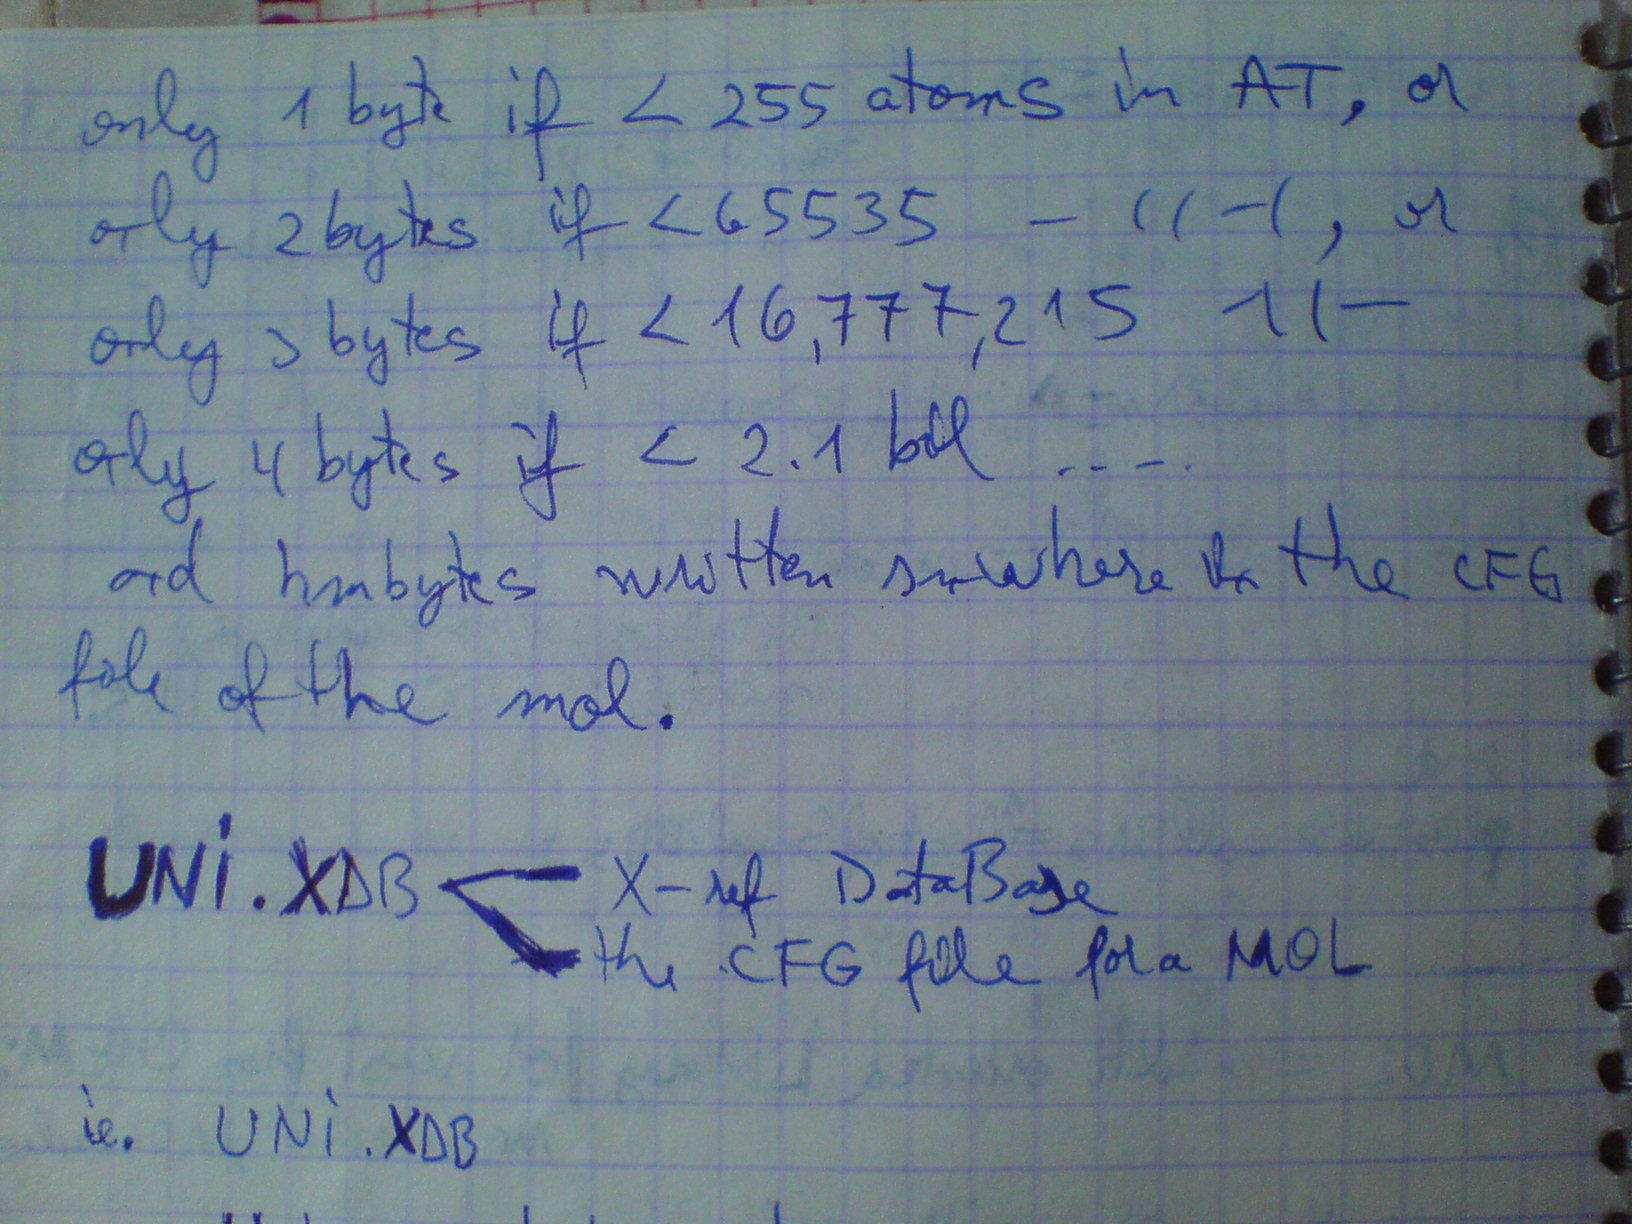 only 1 byte if < 255 atoms in AT, or
only 2 bytes if < 65535 - (( -(, or
only 3 bytes if < 16,777,215 -((-
only 4 bytes if < 2.1 bil .....
and hmbytes written smwhere in the CFG
file of the mol.
UNi.XDB < X-ref DataBase
the CFG file for a MOL
ie. UNi.XDB